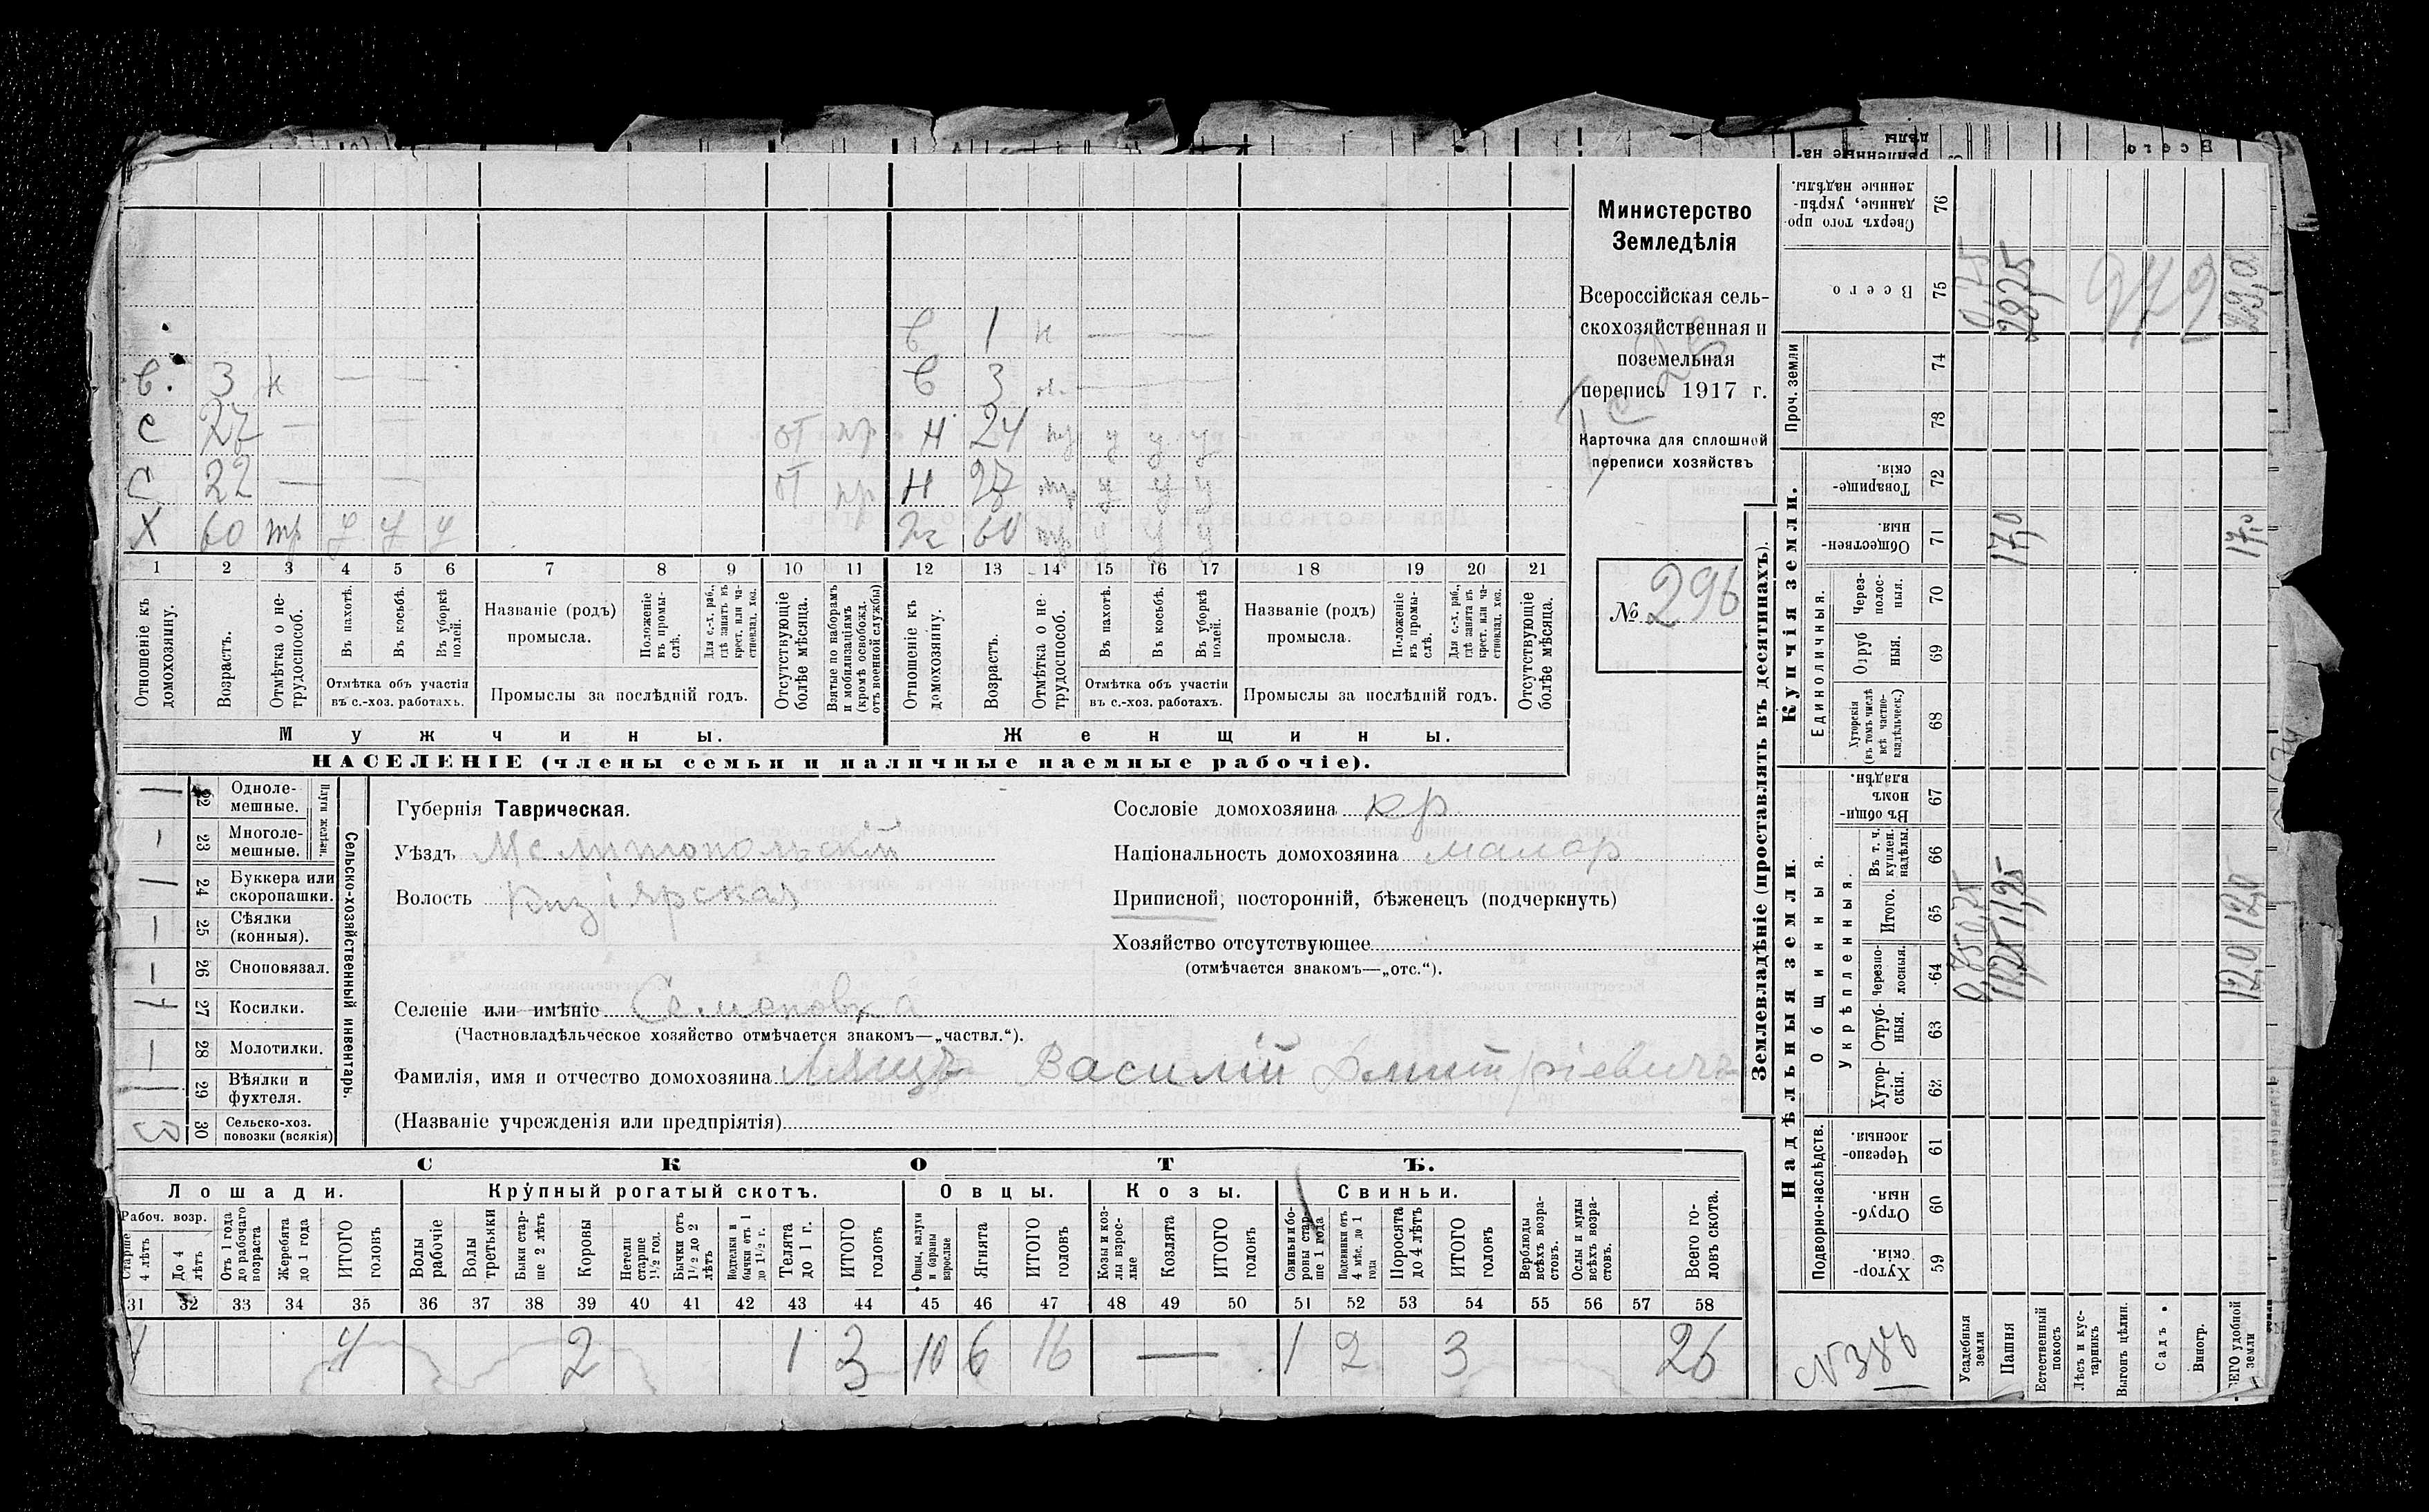 в 1 н — — —
в. 3 н — — в 3 н. — — —
с 27 — — от пр н 24 тр у у у
с 22 — — от пр н 27 тр у у у
х 60 тр у у у 60 тр у у у
1 2 3 4 5 6 7 8 9 10 11 12 13 14 15 16 17 18 19 20 21
Отношеніе къ домохозяину.
Возрастъ.
Отмѣтка о не-
трудоспособ.
Въ пахотѣ.
Въ косьбѣ.
Въ уборкѣ
полей.
Отмѣтка объ участіи
въ с.-хоз. работахъ.
Названіе (родъ)
промысла.
Положеніе
въ промы-
слѣ.
Для с.-х. раб.,
гдѣ занятъ въ
крест. или ча-
стновлад. хоз.
Промыслы за послѣдній годъ.
Отсутствующіе
болѣе мѣсяца.
Взятые по наборамъ
и мобилизаціямъ
(кромѣ освобожд.
отъ военной службы)
Отношеніе къ
домохозяину.
Возрастъ.
Отмѣтка о не-
трудоспособ.
Въ пахотѣ.
Въ косьбѣ.
Въ уборкѣ
полей.
Отмѣтка объ участіи
въ с.-хоз. работахъ.
Названіе (родъ)
промысла.
Положеніе
въ промы-
слѣ.
Для с.-х. раб.,
гдѣ занята въ
крест. или ча-
стновлад. хоз.
Промыслы за послѣдній годъ.
Отсутствующіе
болѣе мѣсяца.
Мужчины. Женщины.
НАСЕЛЕНІЕ (члены семьи и наличные наемные рабочіе).
Министерство
Земледѣлія
Всероссійская сель-
скохозяйственная и
поземельная
перепись 1917 г.
Карточка для сплошной
переписи хозяйствъ
№ 296
Сельско-хозяйственный инвентарь.
Плуги желѣзн.
22 Одноле-
мешные.
23 Многоле-
мешные.
24 Буккера или
скоропашки.
25 Сѣялки
(конныя).
26 Сноповязал.
27 Косилки.
28 Молотилки.
29 Вѣялки и
фухтеля.
3 30 Сельско-хоз.
повозки (всякія)
Губернія Таврическая.
Уѣздъ Мелитопольскій
Волость Кизіярская
Селеніе или имѣніе Семеновка
(Частновладѣльческое хозяйство отмѣчается знакомъ—„частвл.“).
Фамилія, имя и отчество домохозяина Ляшъ Василій Дмитріевичъ
(Названіе учрежденія или предпріятія)
Сословіе домохозяина кр.
Національность домохозяина малор
Приписной, посторонній, бѣженецъ (подчеркнуть)
Хозяйство отсутствующее
(отмѣчается знакомъ—„отс.“).
СКОТЪ.
Лошади. Крупный рогатый скотъ. Овцы. Козы. Свиньи.
Рабоч. возр.
Старше
4 лѣтъ
До 4
лѣтъ
Отъ 1 года
до рабочаго
возраста
Жеребята
до 1 года
ИТОГО
головъ
Волы
рабочіе
Волы
третьяки
Быки стар-
ше 2 лѣтъ
Коровы
Нетели
старше
1½ гол.
Бычки отъ
1½ до 2
лѣтъ
Подтелки и
бычки отъ 1
до 1½ г.
Телята
до 1 г.
ИТОГО
головъ
Овцы, валухи
и бараны
взрослые
Ягнята
ИТОГО
головъ
Козы и коз-
лы взрос-
лые
Козлята
ИТОГО
головъ
Свиньи и бо-
ровы стар-
ше 1 года
Подсвинки отъ
4 мѣс. до 1
года
Поросята
до 4 лѣтъ
ИТОГО
головъ
Верблюды
всѣхъ возра-
стовъ.
Ослы и мулы
всѣхъ возра-
стовъ.
Всего го-
ловъ скота.
31 32 33 34 35 36 37 38 39 40 41 42 43 44 45 46 47 48 49 50 51 52 53 54 55 56 57 58
4 4 2 1 3 10 6 16 — 1 2 3 26
Землевладѣніе (проставлять въ десятинахъ).
Купчія земли.
Надѣльныя земли.
Сверхъ того про-
данные, укрѣп-
ленные надѣлы. 76
Всего 75
Проч. земли 74
73
Товарище-
скія. 72
Обществен-
ныя. 71
Единоличныя.
Через-
полос-
ныя. 70
Отруб
ныя. 69
Хуторскія
(въ томъ числѣ
всѣ частно-
владѣльческ.) 68
Общинныя.
Въ общи-
номъ
владѣн. 67
Укрѣпленныя.
Въ т. ч.
куплен.
надѣлы. 66
Итого. 65
Черезпо-
лосныя. 64
Отруб-
ныя. 63
Хутор-
скія. 62
Подворно-наслѣдств.
Черезпо-
лосныя. 61
Отруб-
ныя. 60
Хутор-
скія. 59
Усадебныя
земли
0,75 0,75 0,75
Пашня
11,25 11,25 17,0 28,25
Естественный
покосъ
Лѣсъ и кус-
тарникъ
Выгонъ цѣлин.
Садъ
Виногр.
ВСЕГО удобной
земли
12,0 12,0 17,0 29,0